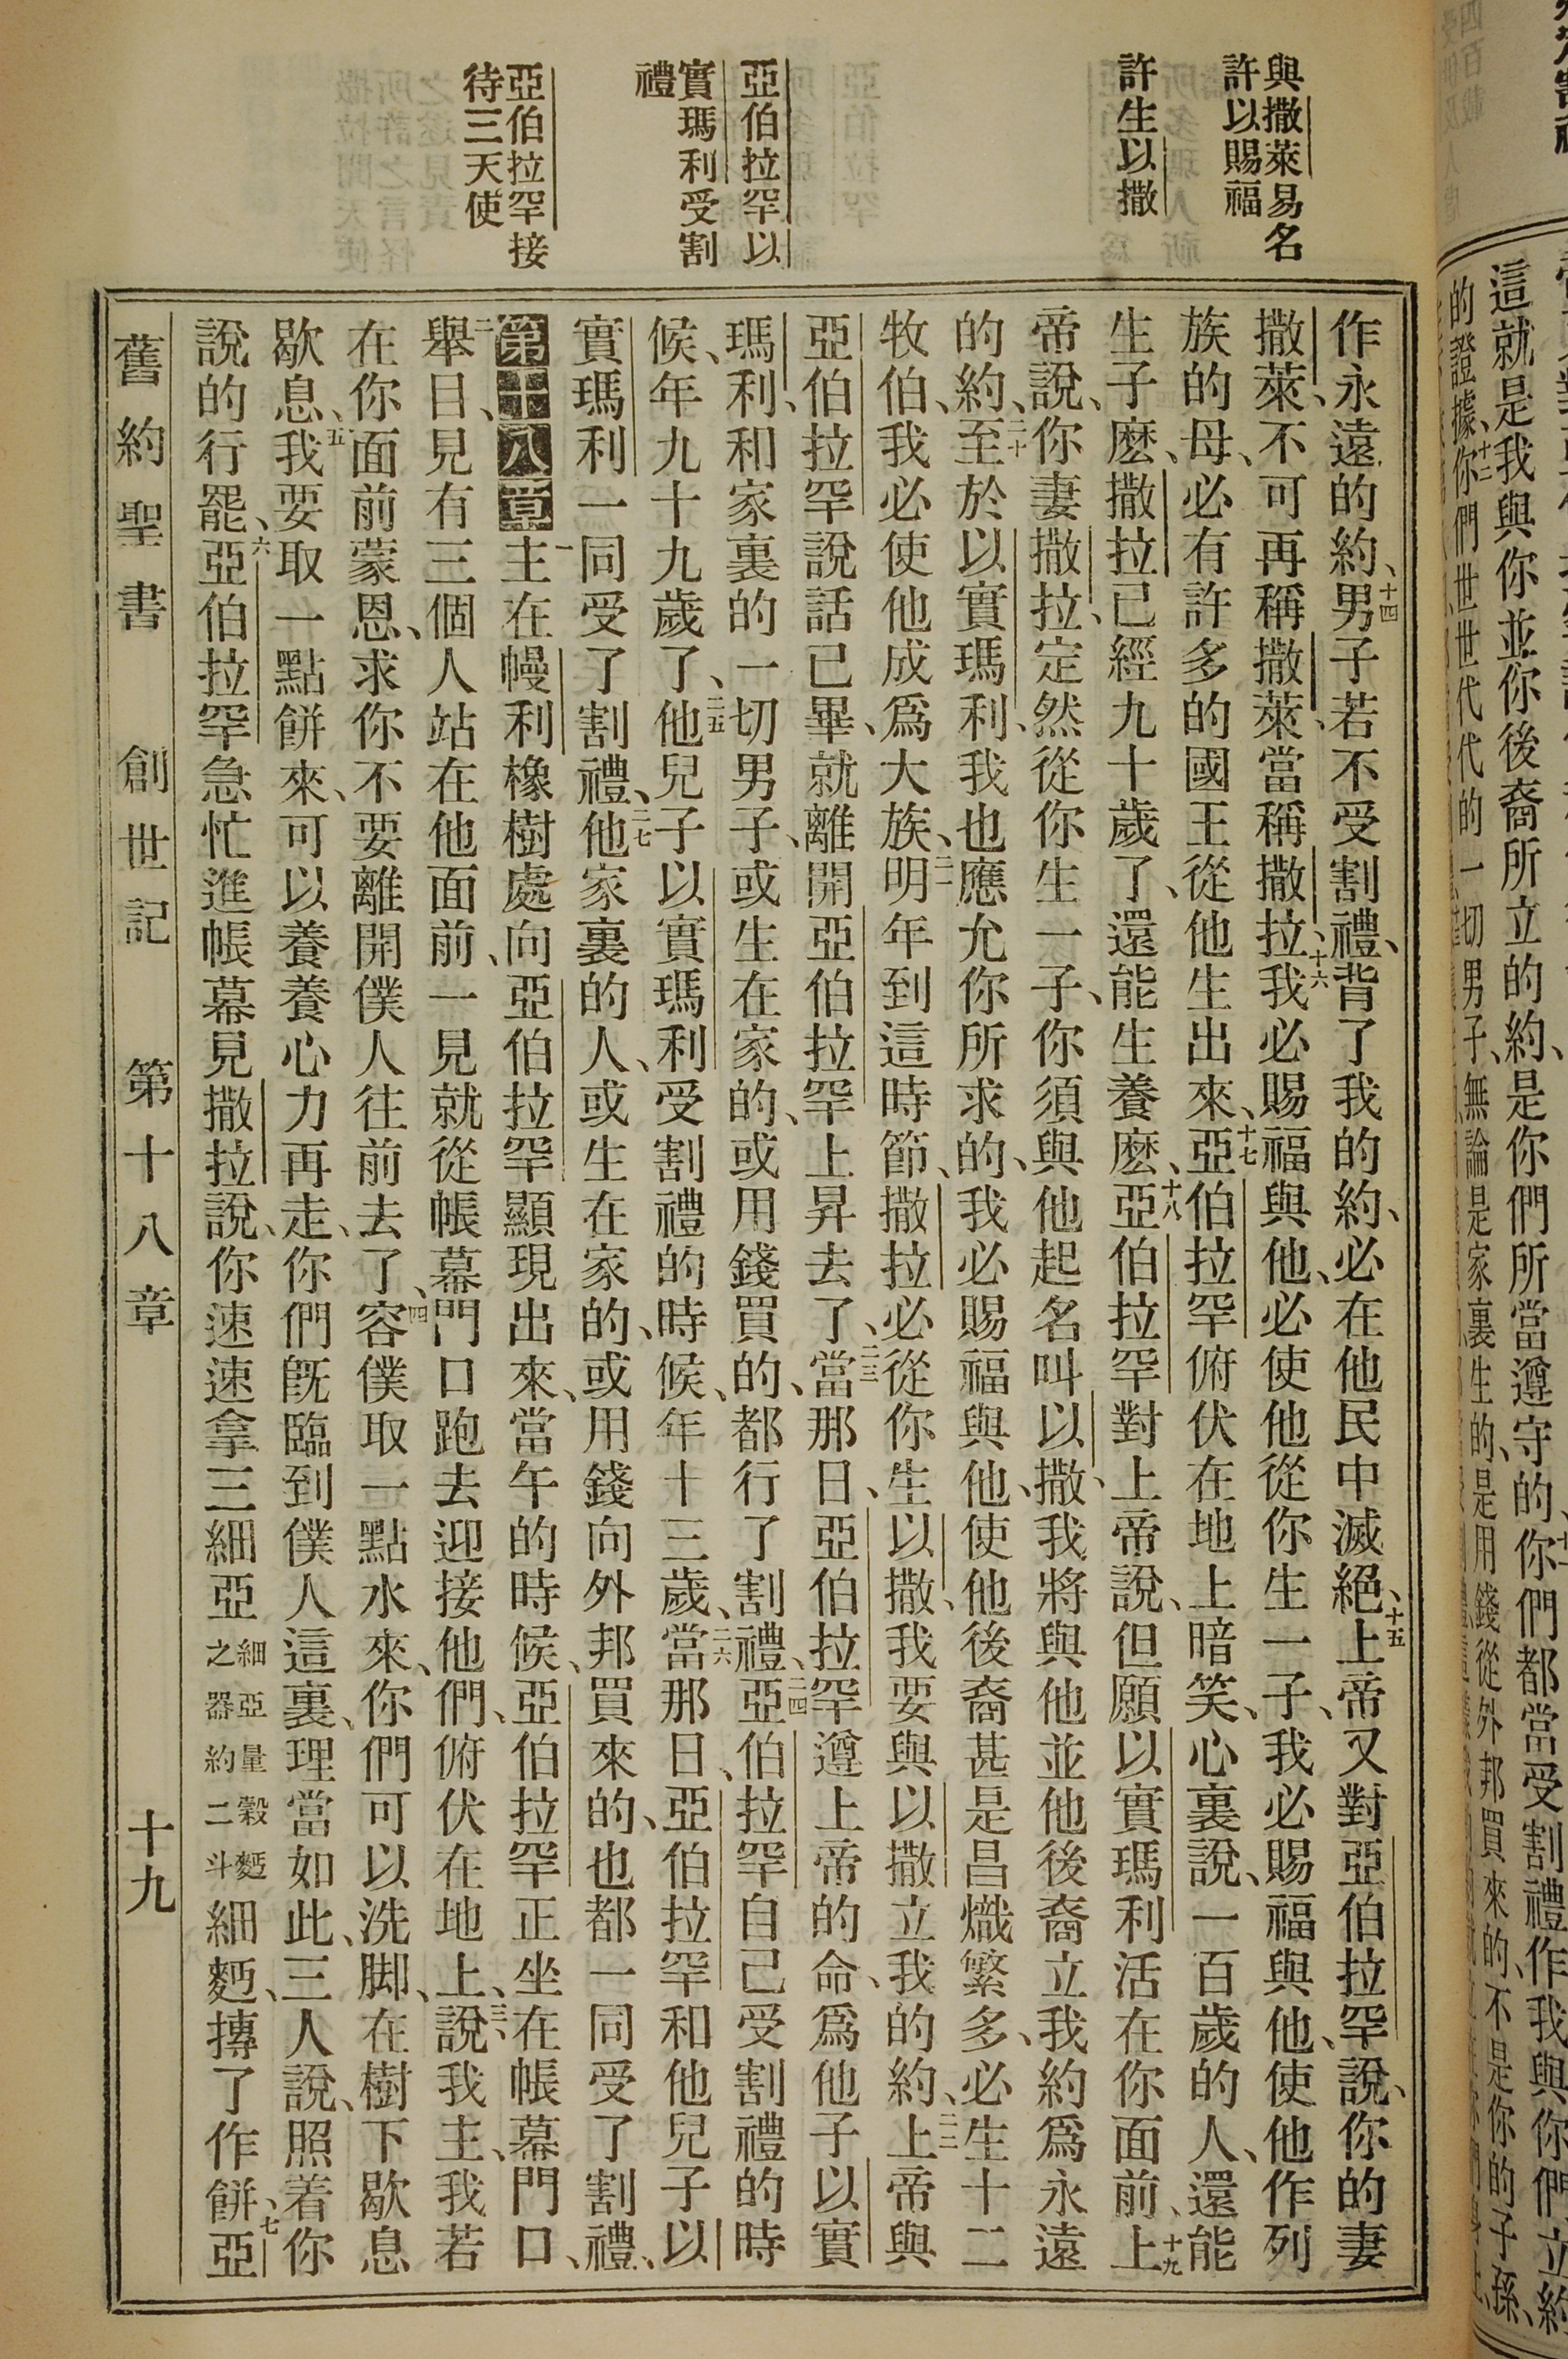 與撒萊易名
許以賜福
許生以撒
亞伯拉罕以
實瑪利受割
禮
亞伯拉罕接
待三天使
作永遠的約、十四男子若不受割禮、背了我的約、必在他民中滅絕、十五上帝又對亞伯拉罕說、你的妻
撒萊、不可再稱撒萊、當稱撒拉、十六我必賜福與他、必使他從你生一子、我必賜福與他、使他作列
族的母、必有許多的國王從他生出來、十七亞伯拉罕俯伏在地上暗笑、心裏說、一百歲的人、還能
生子麼、撒拉已經九十歲了、還能生養麼、十八亞伯拉罕對上帝說、但願以實瑪利活在你面前、十九上
帝說、你妻撒拉、定然從你生一子、你須與他起名叫以撒、我將與他並他後裔立我約爲永遠
的約、二十至於以實瑪利、我也應允你所求的、我必賜福與他、使他後裔甚是昌熾繁多、必生十二
牧伯、我必使他成爲大族、二一明年到這時節、撒拉必從你生以撒、我要與以撒立我的約、二二上帝與
亞伯拉罕說話已畢、就離開亞伯拉罕上昇去了、二三當那日、亞伯拉罕遵上帝的命、爲他子以實
瑪利、和家裏的一切男子、或生在家的、或用錢買的、都行了割禮、二四亞伯拉罕自己受割禮的時
候、年九十九歲了、二五他兒子以實瑪利受割禮的時候、年十三歲、二六當那日、亞伯拉罕和他兒子以
實瑪利一同受了割禮、二七他家裏的人、或生在家的、或用錢向外邦買來的、也都一同受了割禮、
第十八章 一主在幔利橡樹處向亞伯拉罕顯現出來、當午的時候、亞伯拉罕正坐在帳幕門口、
二舉目、見有三個人站在他面前、一見就從帳幕門口跑去迎接他們、俯伏在地上、三說我主、我若
在你面前蒙恩、求你不要離開僕人往前去了、四容僕取一點水來、你們可以洗脚、在樹下歇息
歇息、五我要取一點餅來、可以養養心力再走、你們旣臨到僕人這裏、理當如此、三人說、照着你
說的行罷、六亞伯拉罕急忙進帳幕見撒拉說、你速速拿三細亞細亞量穀麪之器約二斗細麪、摶了作餅、七亞
舊約聖書 創世記 第十八章 十九